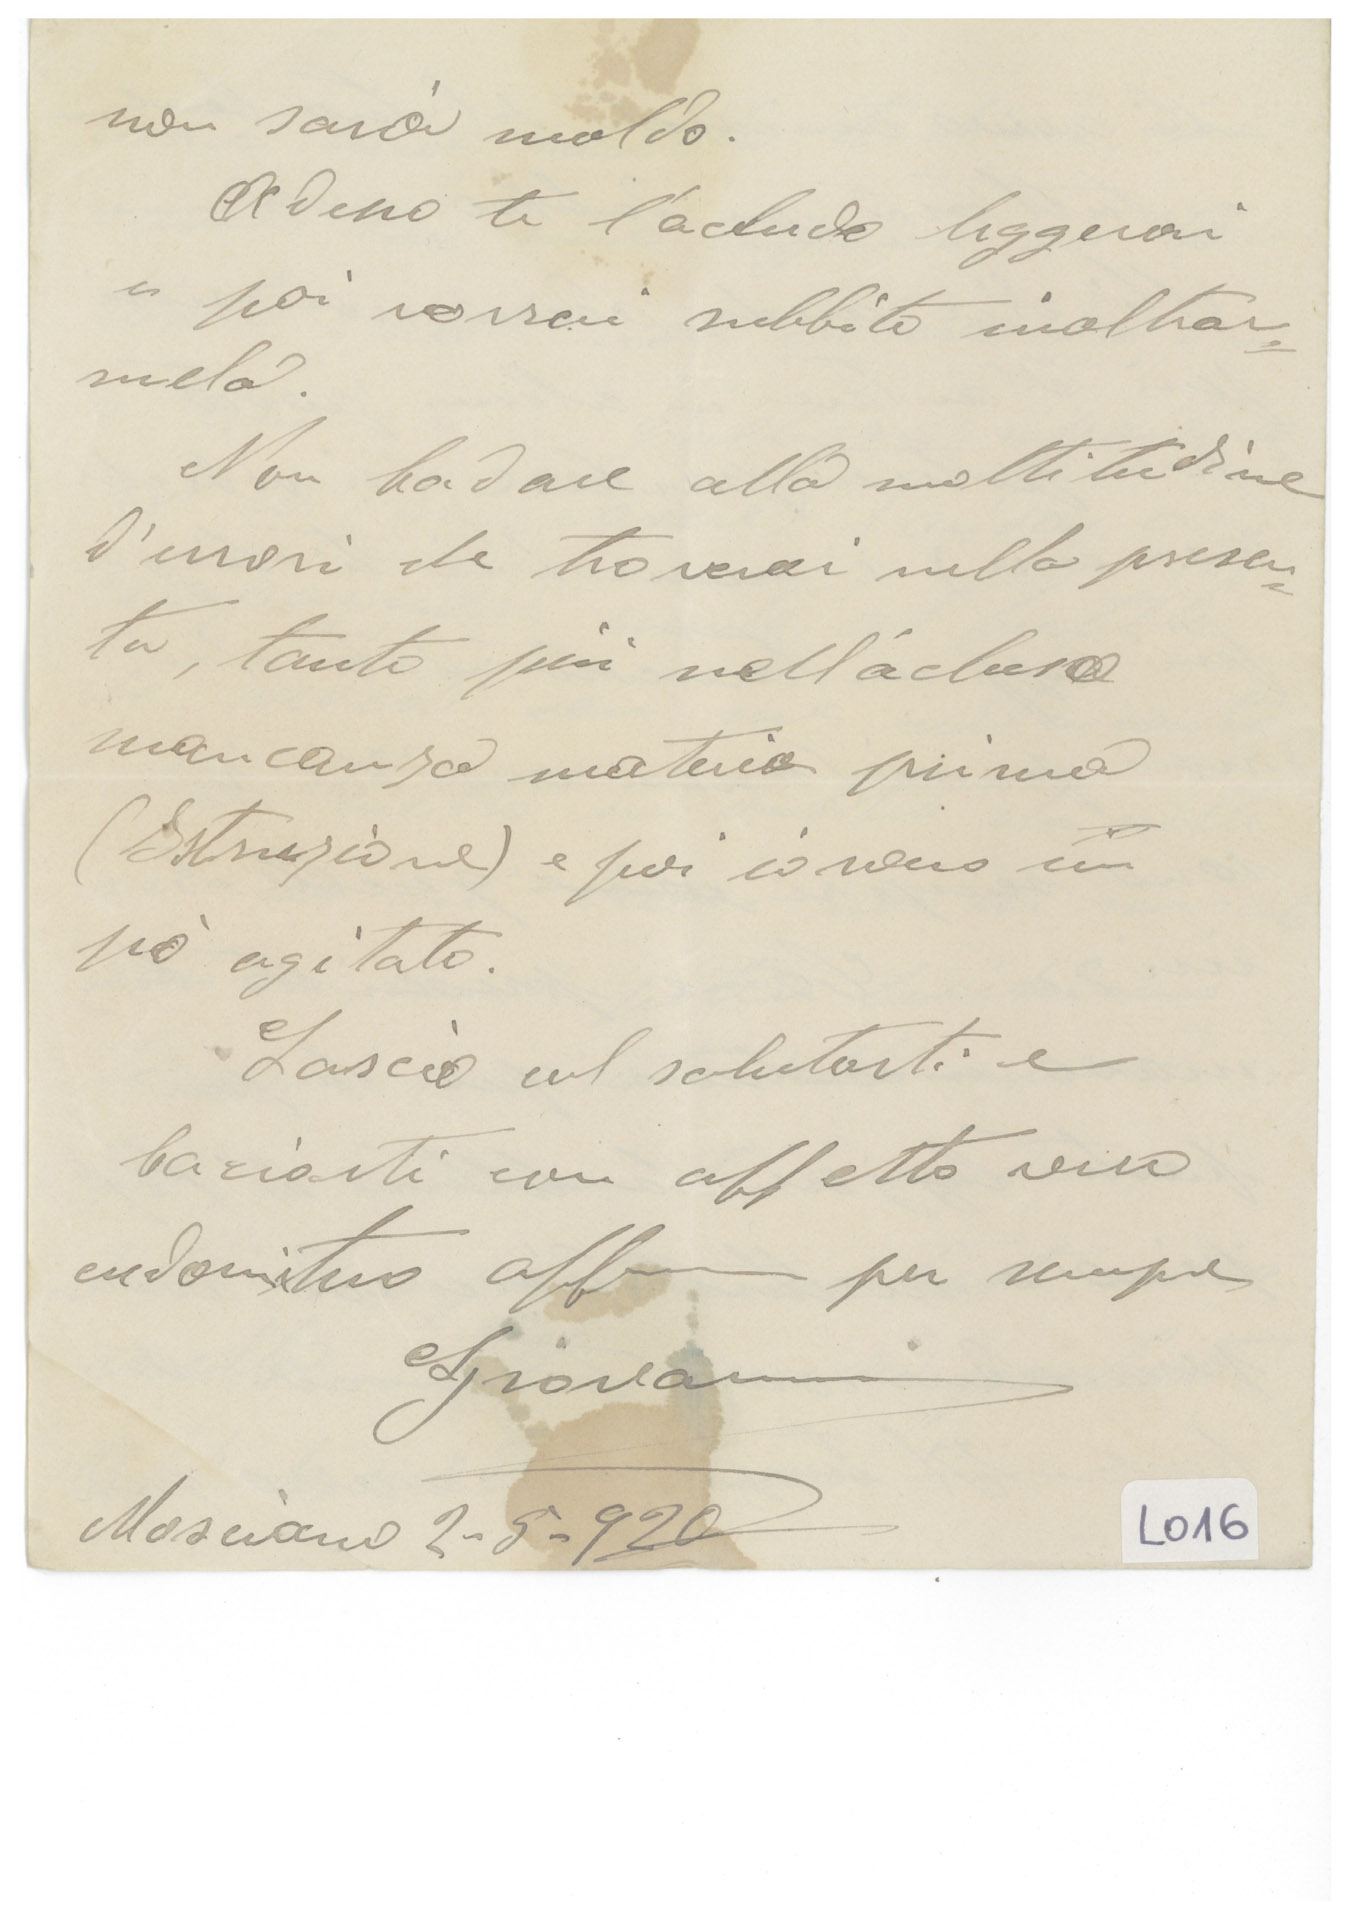 non sarà moldo.
Adesso te l'acludo leggerai
e poi vorrai subbito inoltrar=
mela.
Non badare alla moltitudine
d'errori che troverai nella presen=
te, tanto più nell'acluso
mancanza materia prima
(Istruzione) e poi io sono un
pò agitato.
Lascio col salutarti e
baciarti con affetto vero
credomi tuo affmo per sempre
Giovanni
Mosciano 2-5-920
L016